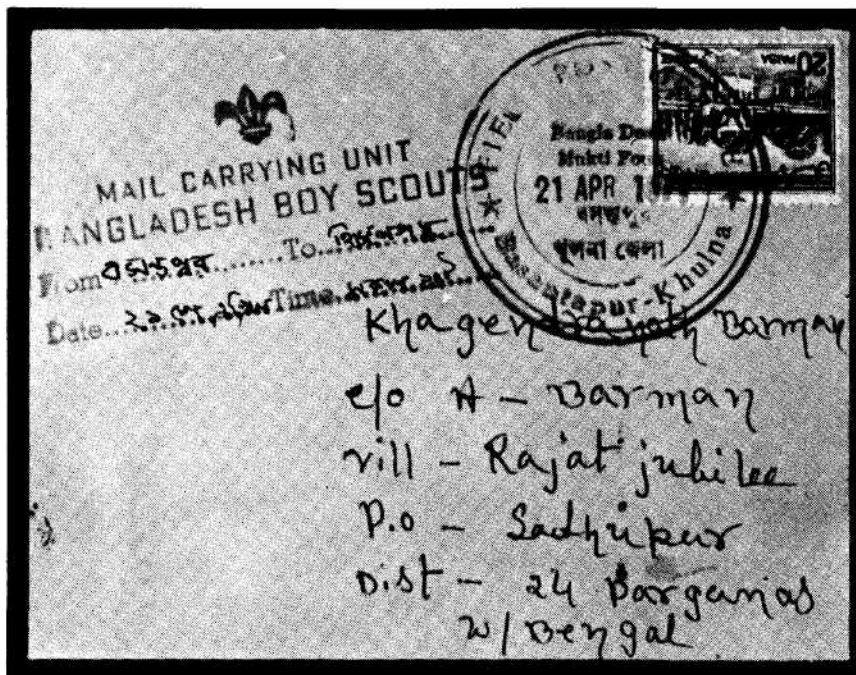 MAIL CARRYING UNIT
BANGLADESH BOY SCOUTS
From To
Date Time
FIEL
Bangla
Mukti
21 APR
খুলনা জেলা
Basantapur-Khulna
20
INDIA
Khagendra nath Barman
c/o A - Barman
vill - Rajat jubilee
P.o - Sadhupur
Dist - 24 Parganas
w/Bengal